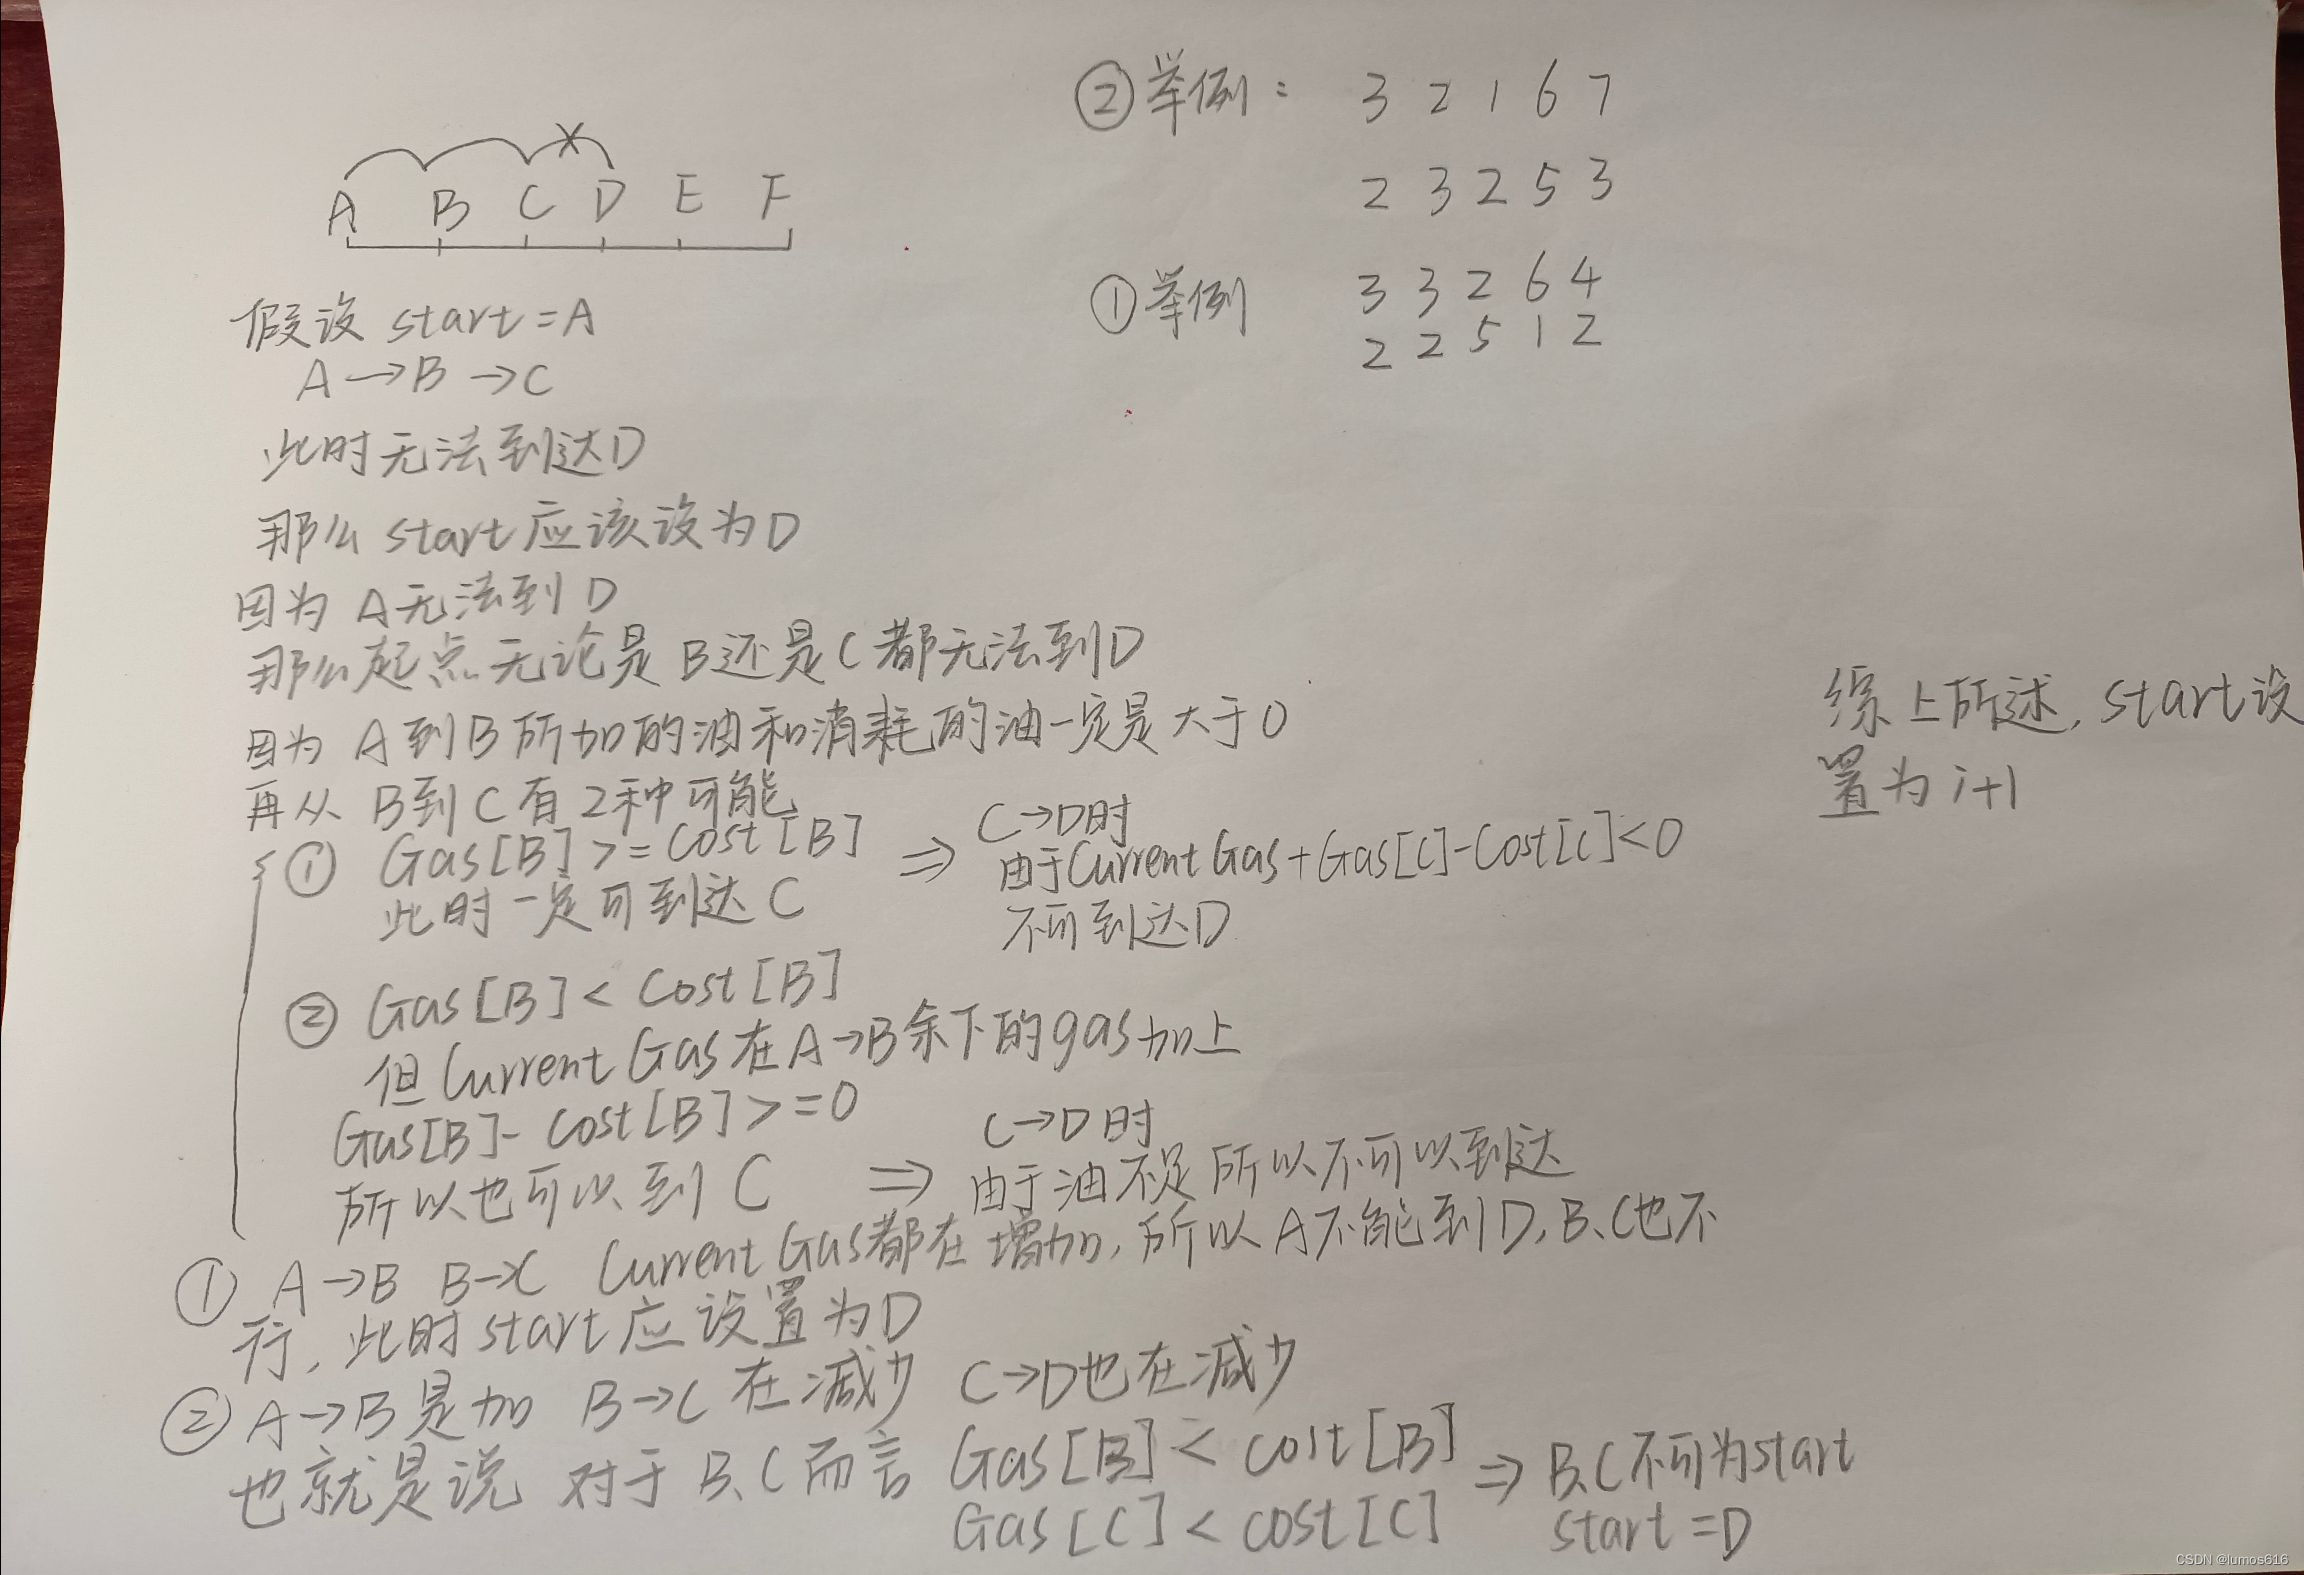 A B C D E F
假设 start=A
A→B→C
此时无法到达D
那么 start应该设为D
因为 A无法到D
那么起点无论是B还是C都无法到D
因为 A到B所加的油和消耗的油一定是大于0
再从 B到C有2种可能
① Gas[B]>=cost[B]
此时一定可到达C
⇒ C→D时
由于Current Gas+Gas[C]-Cost[C]<0
不可到达D
② Gas[B]<Cost[B]
但Current Gas在A→B余下的gas加上
Gas[B]-Cost[B]>=0
所以也可以到C
⇒ C→D时
由于油不足所以不可以到达
① A→B B→C Current Gas都在增加,所以A不能到D,B、C也不
行,此时start应设置为D
② A→B是加 B→C在减少 C→D也在减少
也就是说 对于B、C而言 Gas[B]<cost[B]
Gas[C]<cost[C]
⇒ B、C不可为start
start=D
②举例: 3 2 1 6 7
2 3 2 5 3
①举例 3 3 2 6 4
2 2 5 1 2
综上所述,start设
置为i+1
CSDN @lumos616